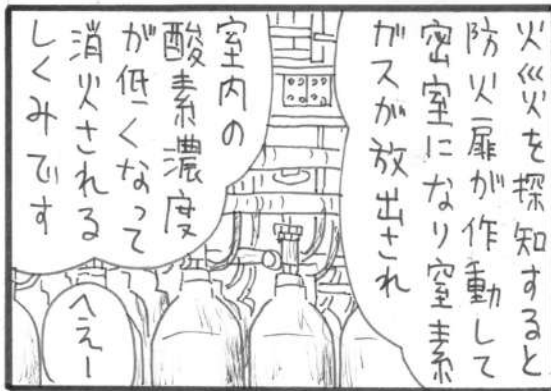 火災を探知すると
防火扉が作動して
密室になり窒素
ガスが放出され
室内の
酸素濃度
が低くなって
消火される
しくみです
へえー